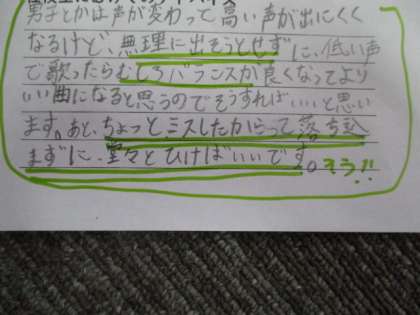 男子とかは声が変わって高い声が出にくく
なるけど、無理に出そうとせずに、低い声
で歌ったらむしろバランスが良くなってより
いい曲になると思うのでそうすればいいと思い
ます。あと、ちょっとミスしたからって落ち込
まずに、堂々とひけばいいです。そう!!